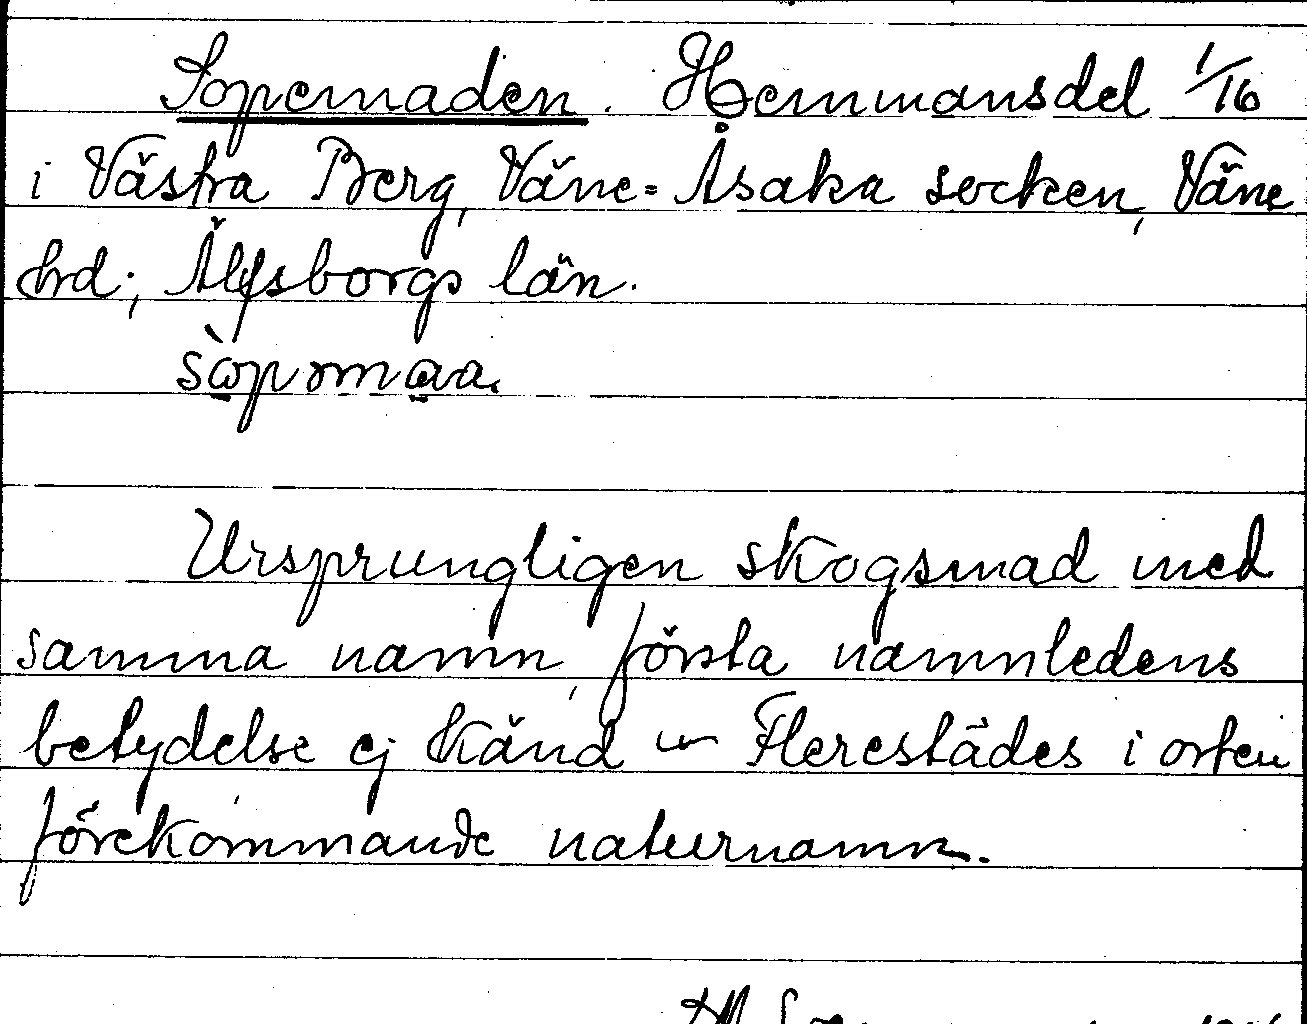 Sopemaden. Hemmansdel 1/16
i Västra Berg, Väne-Åsaka socken, Väne
hrd; Älfsborgs län.
Ursprungligen skogsmad med
samma namn, första namnledens
betydelse ej känd – Flerestädes i orten
förekommande naturnamn.